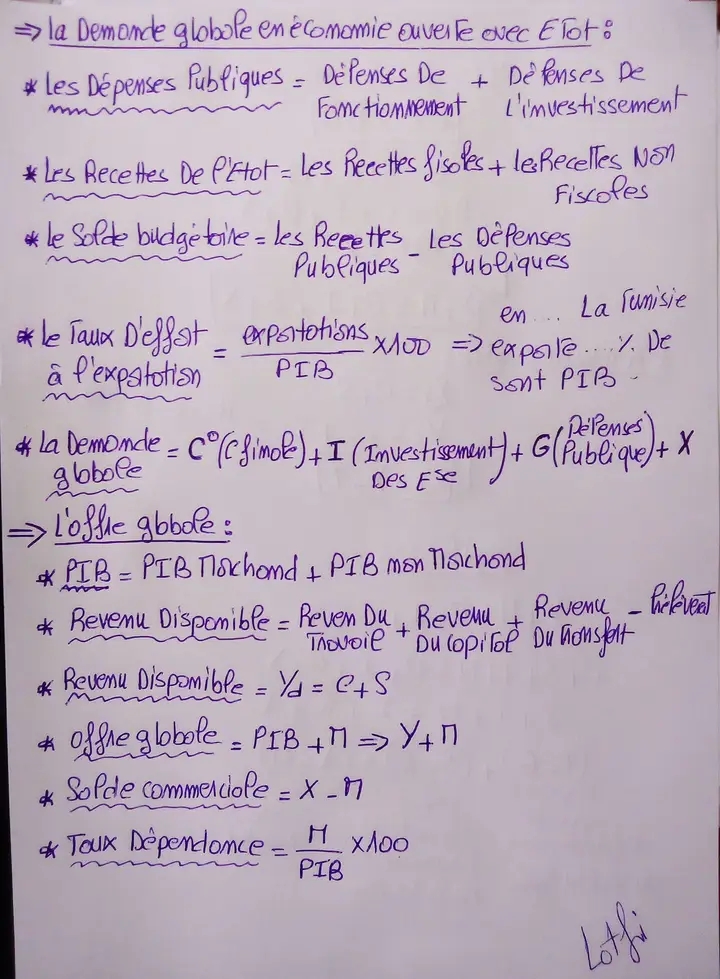 ⇒ la Demande globale en économie ouverte avec ETat :
* les Dépenses Publiques = Dépenses De Fonctionnement + Dépenses De L'investissement
* Les Recettes De l'Etat = les Recettes fiscales + les Recettes Non Fiscales
* le Solde budgétaire = les Recettes Publiques - les Dépenses Publiques
* le Taux D'effort à l'expotation = exportations / PIB x100 ⇒ en ... La Tunisie exporte ....% De sont PIB.
* La Demande globale = C°(C finale) + I (Investissement Des Ese) + G (Dépenses Publique) + X
⇒ L'offre globale :
* PIB = PIB Marchand + PIB non Marchand
* Revenu Disponible = Reven Du Travaie + Revenu Du Capital + Revenu Du Transfert -
* Revenu Disponible = Yd = C + S
* offre globale = PIB + M ⇒ Y + M
* Solde commerciale = X - M
* Taux Dépendance = M / PIB x100
Lotfi